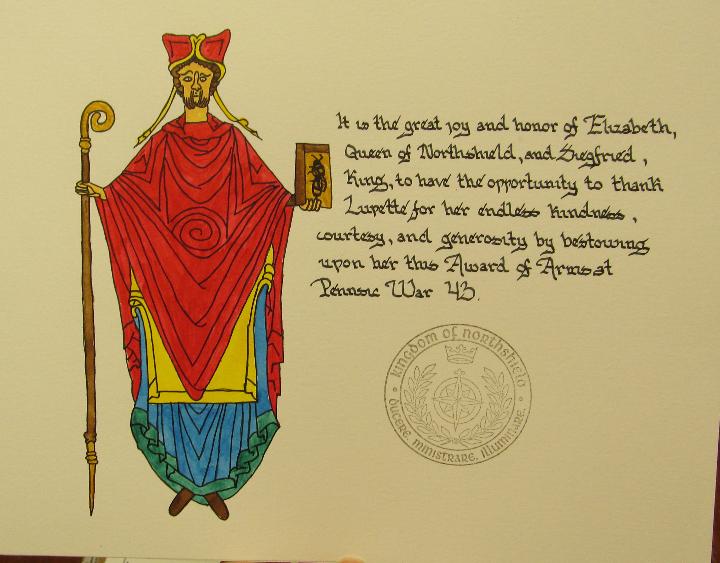 It is the great joy and honor of Elizabeth,
Queen of Northshield, and Siegfried,
King, to have the opportunity to thank
Lupette for her endless kindness,
courtesy, and generosity by bestowing
upon her this Award of Arms at
Pennsic War 43.
kingdom of northshield
ducere, ministrare, illuminare.